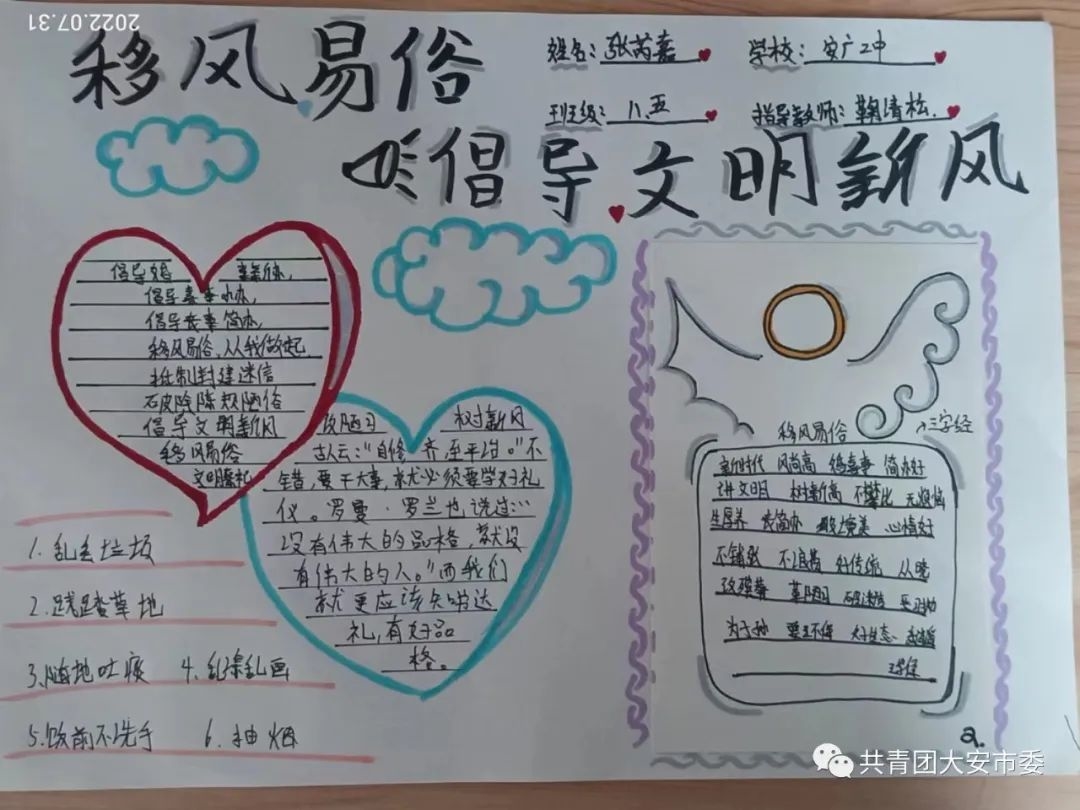 2022.07.31
移风易俗
倡导文明新风
姓名：张芮嘉
学校：安广二中
班级：八、五
指导教师：鞠清松
倡导婚 新办，
倡导喜事小办，
倡导丧事简办，
移风易俗，从我做起
抵制封建迷信
破除陈规陋俗
倡导文明新风
移风易俗
文明
改陋习 树新风
古人云："自修 齐，至平治。"不
错，要干大事，就必须要学好礼
仪。罗曼·罗兰也说过：
没有伟大的品格，就没
有伟大的人。"而我们
就更应该知 达
礼，有好品
格。
1.乱丢垃圾
2.践踏草地
3.随地吐痰 4.乱涂乱画
5.饭前不洗手 6.抽烟
移风易俗
三字经
新时代 风尚高 婚喜事 简办好
讲文明 树新高 不攀比 无烦恼
生厚养 丧简办 心情好
不铺张 不浪费 好传统
革陋习
为子孙
环保
a.
共青团大安市委